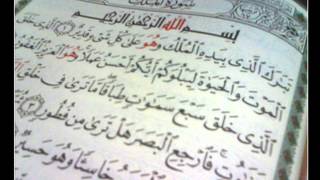 سورة الملك
بسم الله الرحمن الرحيم
تبرك الذي بيده الملك وهو على كل شيء قدير
الموت والحيوة ليبلوكم أيكم أحسن عملا وهو العزيز الغفور
الذي خلق سبع سموت طباقا ما ترى في خلق
فارجع البصر هل ترى من فطور
خاسئا وهو حسير